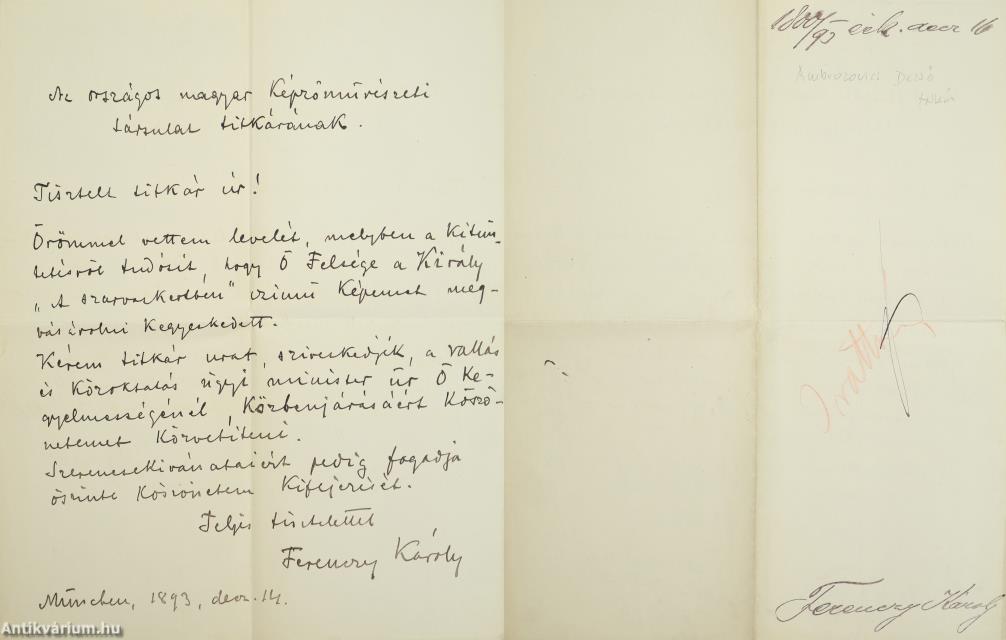 Az országos magyar Képzőművészeti
társulat titkárának.
Tisztelt titkár úr!
Örömmel vettem levelét, melyben a Kitün-
tetésről tudósít, hogy Ő Felsége a Király
„A szarvaskertben" czimű Képemet meg-
vásárolni Kegyeskedett.
Kérem titkár urat, sziveskedjék, a vallás
és Közoktatás ügyi minister úr Ő Ke-
gyelmességénél, Közbenjárásáért Köszö-
netemet Közvetíteni.
Szerencsekivánataiért pedig fogadja
őszinte Köszönetem Kifejezését.
Teljes tisztelettel
Ferenczy Károly
München, 1893, decz. 14.
/93 érk. decz 16
Ambrozovics Dezső
Irattár
Ferenczy Károly
Antikvárium.hu